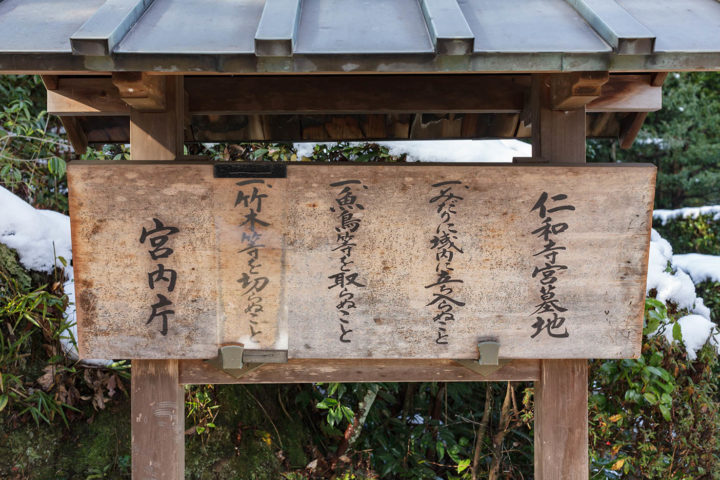 仁和寺宮墓地
一、みだりに域内に立入らぬこと
一、魚鳥等を取らぬこと
一、竹木等を切らぬこと
宮内庁